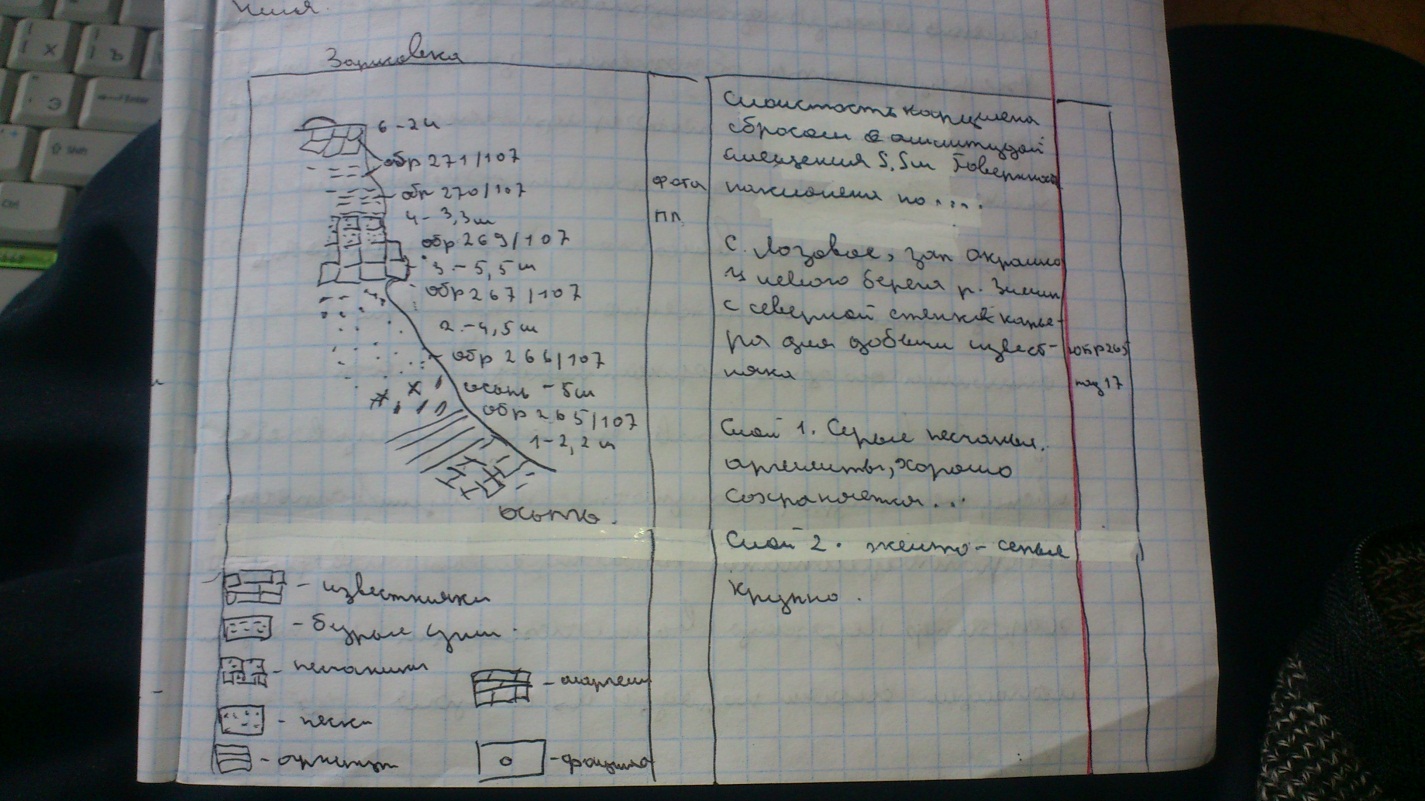 Зарисовка
6-2м
обр 271/107
обр 270/107
4-3,3м
обр 269/107
3-5,5м
обр 267/107
2-4,5м
обр 266/107
осыпь - 5м
обр 265/107
1-2,2м
осыпь.
- известняки
- бурые угли.
- песчаники
- пески
- аргиллит
- мергели
фото
пл
Слоистость нарушена
сбросом с амплитудой
смещения 5,5м Поверхность
наклонена по ....
С. Лозовое, зап окраина
левого берега р.
с северной стенки карье-
ра для добычи извест-
няка
Слой 1. Серые песчаные.
аргиллиты, хорошо
сохраняется...
Слой 2. желто-серые
крупно.
обр 265
17